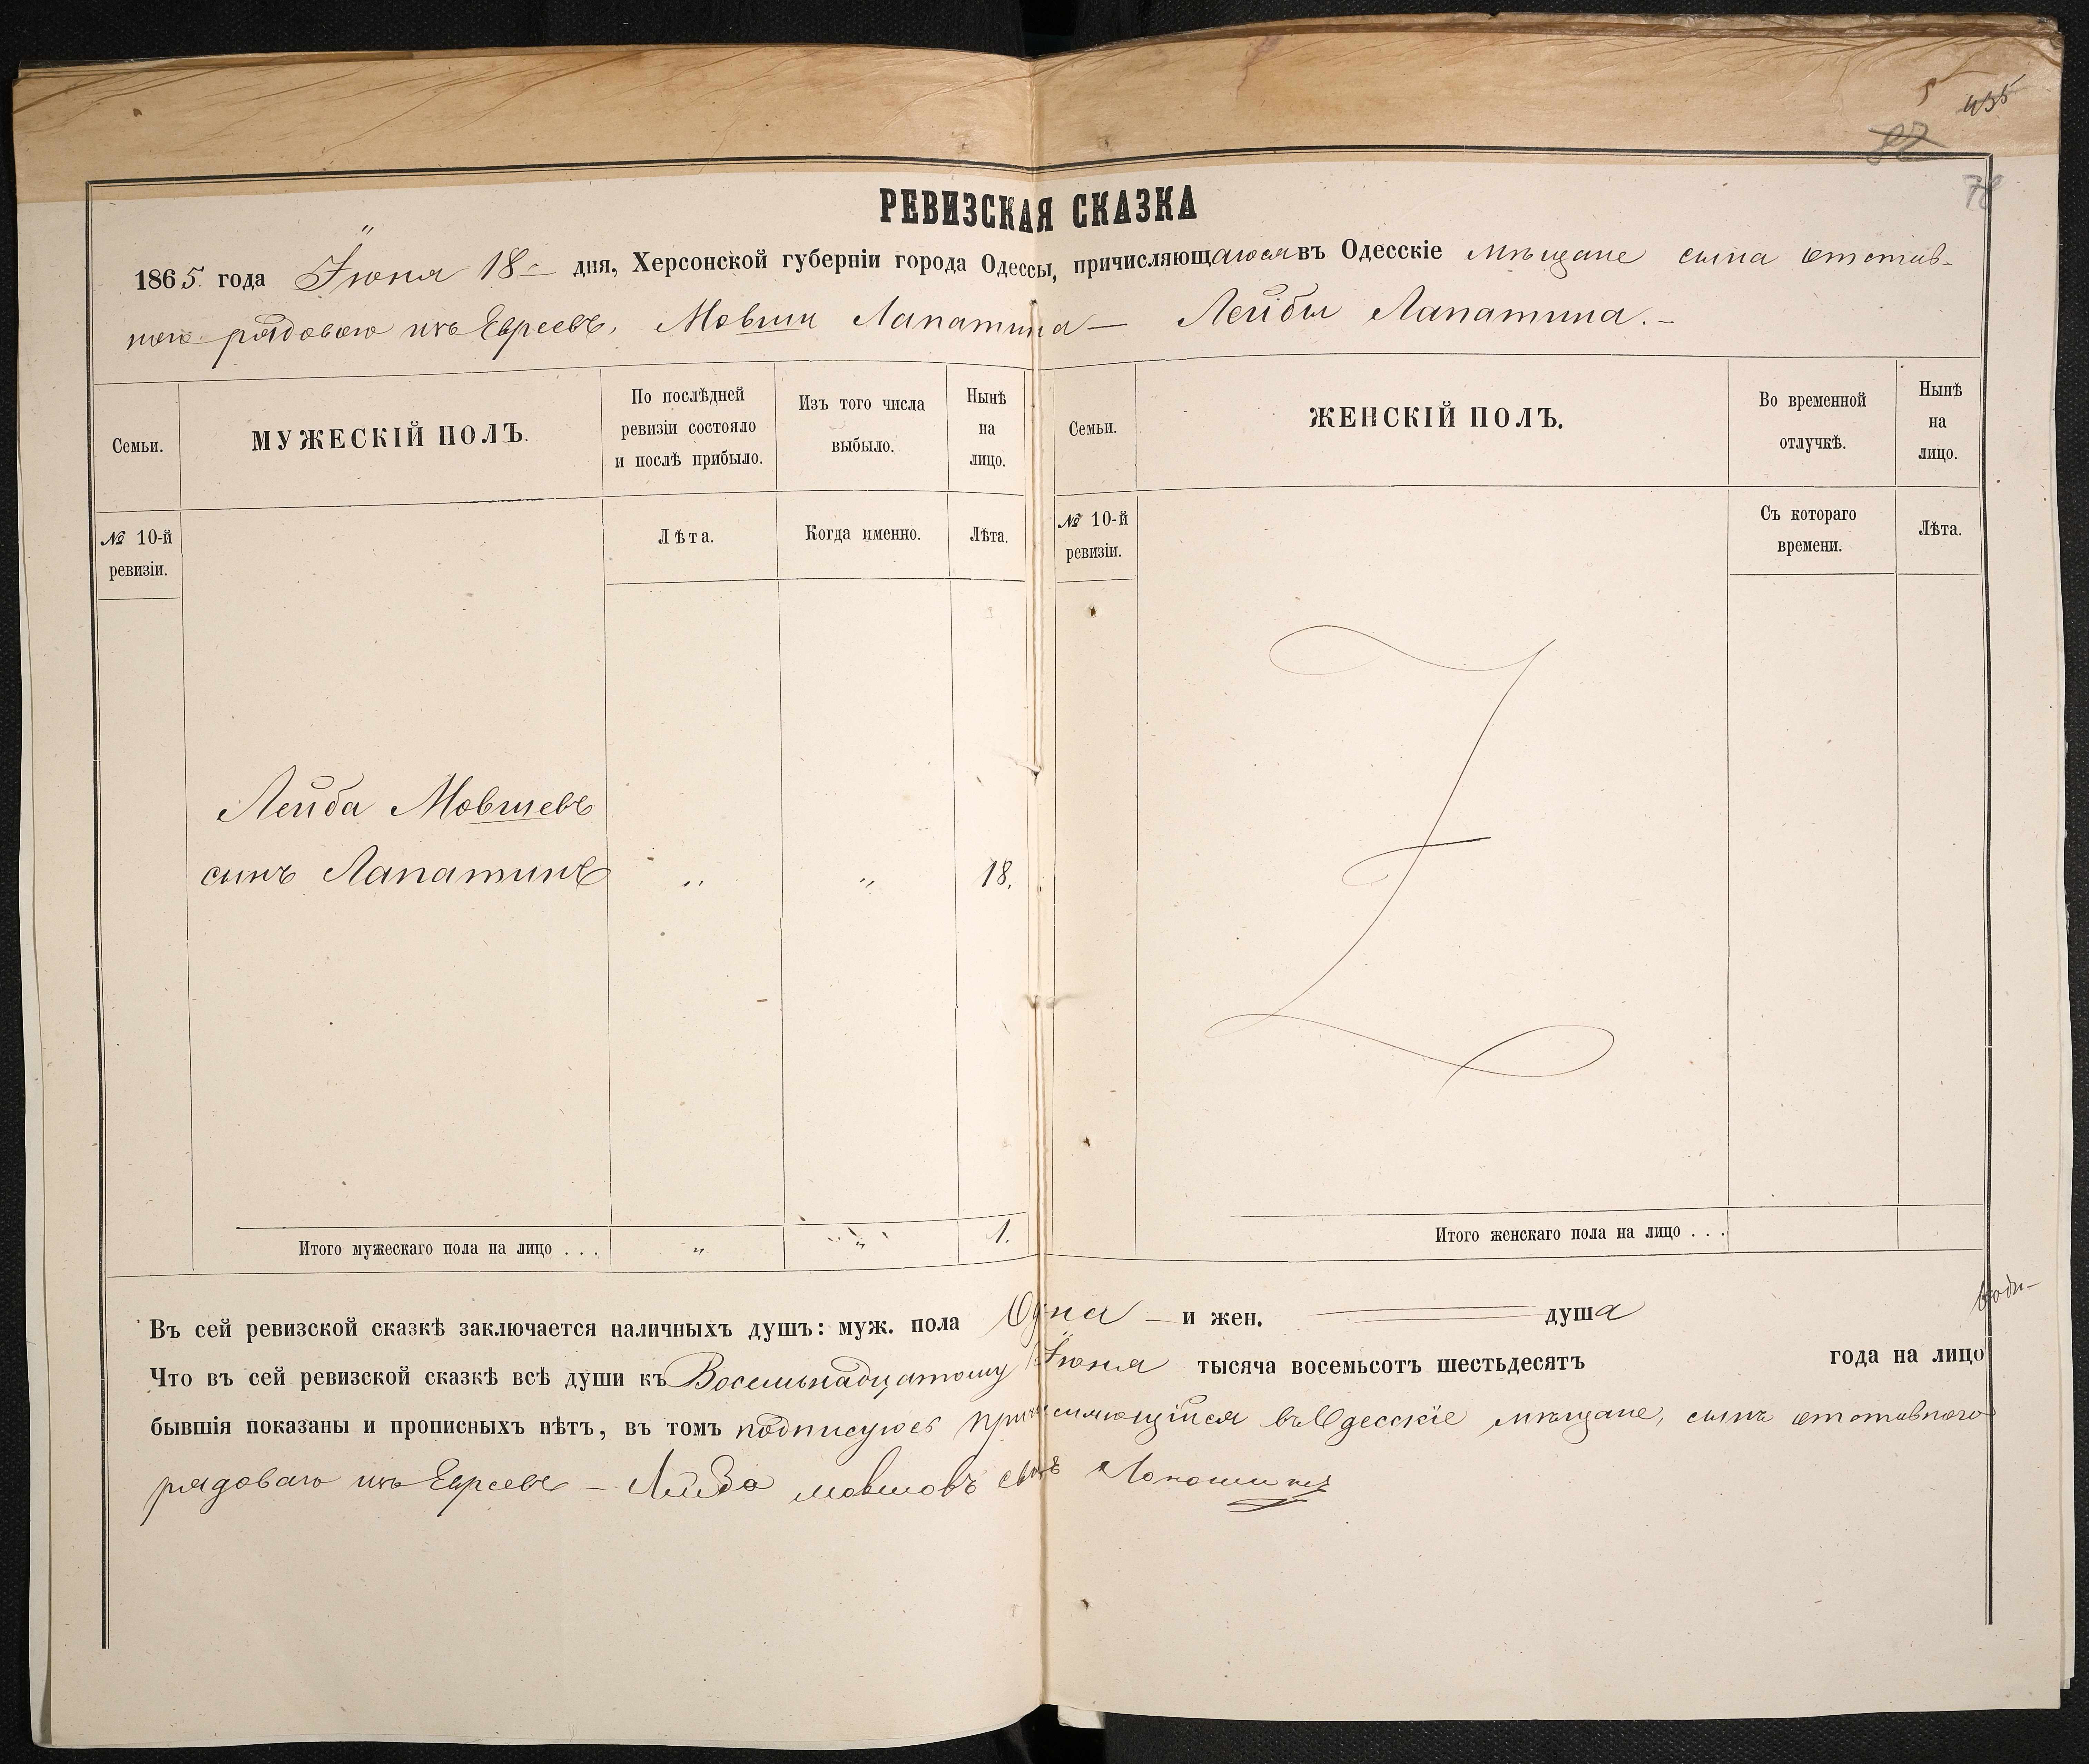 5 435
82
78
РЕВИЗСКАЯ СКАЗКА
1865 года Іюня 18 дня, Херсонской губерніи города Одессы, причисляющагося въ Одесскіе мѣщане сына отстав-
ного рядоваго изъ Евреевъ, Мовши Лапатина — Лейбы Лапатина. –
Семьи.
МУЖЕСКІЙ ПОЛЪ.
По послѣдней ревизіи состояло и послѣ прибыло.
Изъ того числа выбыло.
Нынѣ на лицо.
Семьи.
ЖЕНСКІЙ ПОЛЪ.
Во временной отлучкѣ.
Нынѣ на лицо.
№ 10-й ревизіи.
Лѣта.
Когда именно.
Лѣта.
№ 10-й ревизіи.
Съ котораго времени.
Лѣта.
Лейба Мовшевъ
сынъ Лапатинъ „ „ 18.
Итого мужескаго пола на лицо . . . „ „ 1.
Итого женскаго пола на лицо . . .
Въ сей ревизской сказкѣ заключается наличныхъ душъ: муж. пола Одна — и жен. — душа
Что въ сей ревизской сказкѣ всѣ души къ Восемьнадцатому Іюня тысяча восемьсотъ шестьдесятъ года на лицо
бывшія показаны и прописныхъ нѣтъ, въ томъ подписуюсь причисляющійся въ Одесскіе мѣщане, сынъ отставного
рядоваго изъ Евреевъ – Лейба мовшовъ сынъ Лопотинъ